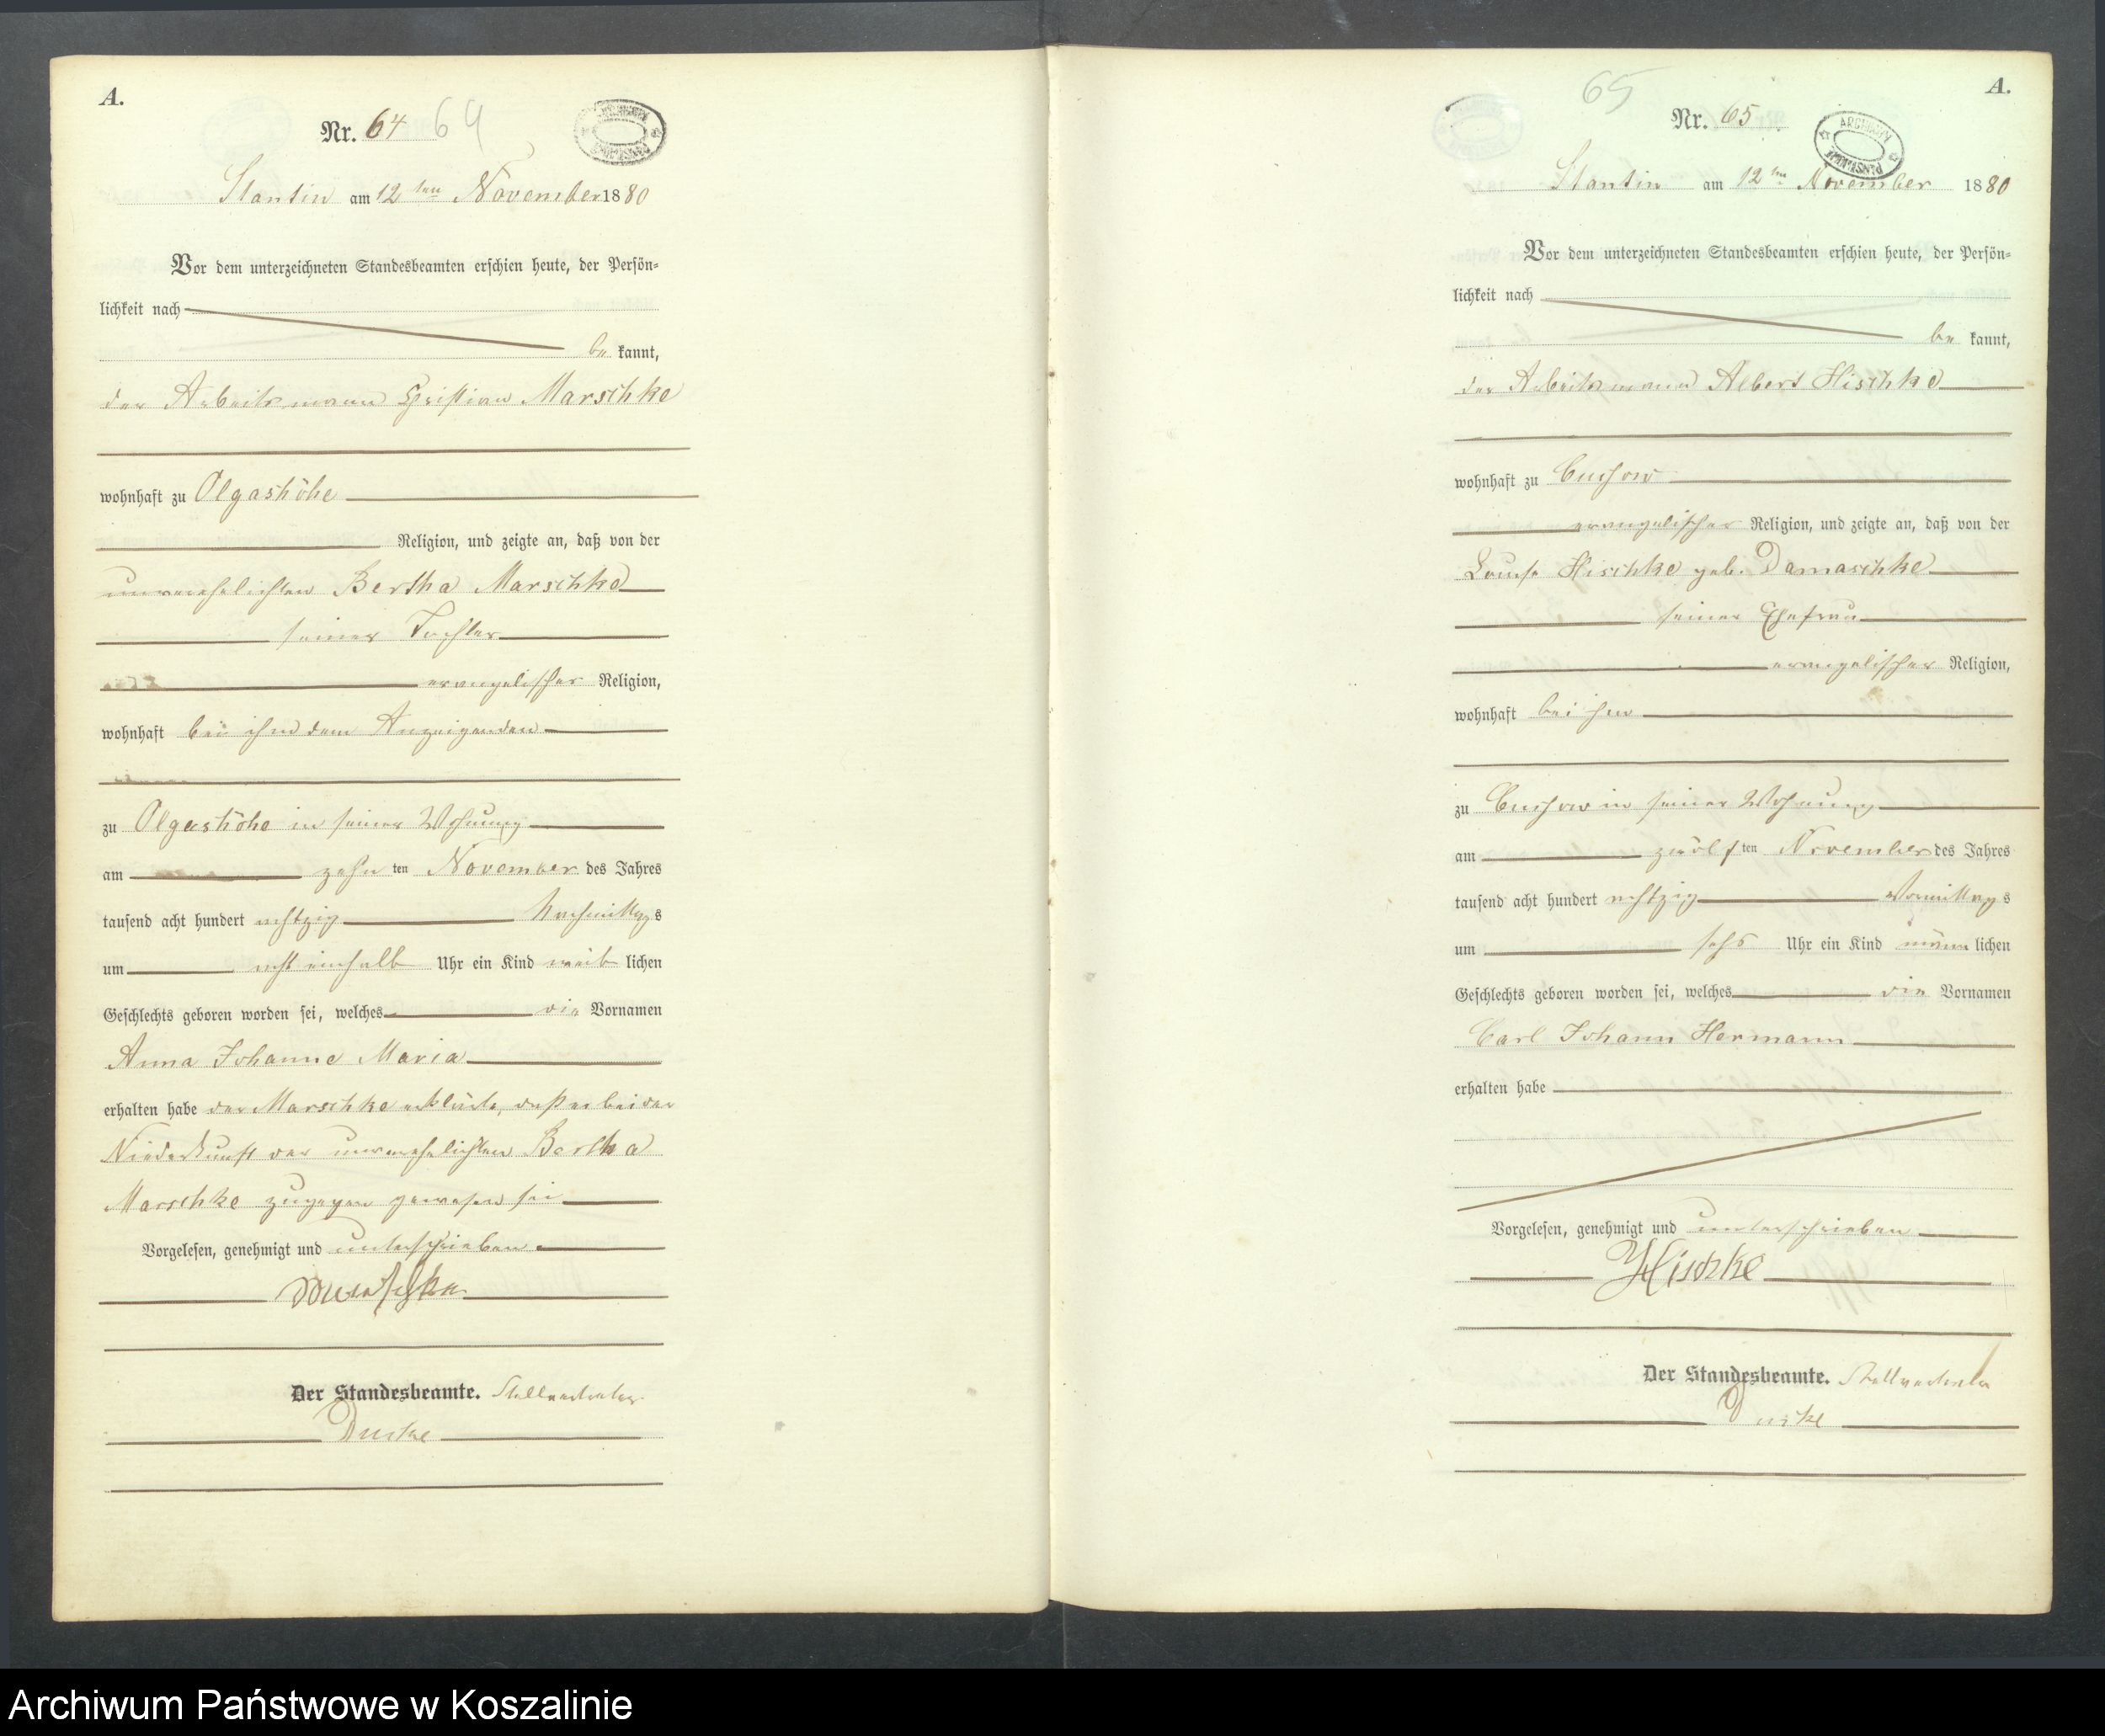 A.
Nr. 64 64
ARCHIWUM PAŃSTWOWE
Stantin am 12ten November 1880
Vor dem unterzeichneten Standesbeamten erschien heute, der Persön-
lichkeit nach
be kannt,
der Arbeitsmann Christian Marschke
wohnhaft zu Olgashöhe
Religion, und zeigte an, daß von der
unverehelichten Bertha Marschke
seiner Tochter
evangelischer Religion,
wohnhaft bei ihm dem Anzeigenden
zu Olgashöhe in seiner Wohnung
am zehn ten November des Jahres
tausend acht hundert achtzig Nachmittags
um acht einhalb Uhr ein Kind weib lichen
Geschlechts geboren worden sei, welches die Vornamen
Anna Johanne Maria
erhalten habe der Marschke erklärte, daß er bei der
Niederkunft der unverehelichten Bertha
Marschke zugegen gewesen sei
Vorgelesen, genehmigt und unterschrieben
Marschke
Der Standesbeamte. Stellvertreter
A.
65
Nr. 65
ARCHIWUM PAŃSTWOWE
Stantin am 12ten November 1880
Vor dem unterzeichneten Standesbeamten erschien heute, der Persön-
lichkeit nach
be kannt,
der Arbeitsmann Albert Hischke
wohnhaft zu Cuhsow
evangelischer Religion, und zeigte an, daß von der
Louise Hischke geb. Damaschke
seiner Ehefrau
evangelischer Religion,
wohnhaft bei ihm
zu Cuhsow in seiner Wohnung
am zwölf ten November des Jahres
tausend acht hundert achtzig Vormittags
um sechs Uhr ein Kind männ lichen
Geschlechts geboren worden sei, welches die Vornamen
Carl Johann Hermann
erhalten habe
Vorgelesen, genehmigt und unterschrieben
Hischke
Der Standesbeamte. Stellvertreter
Archiwum Państwowe w Koszalinie